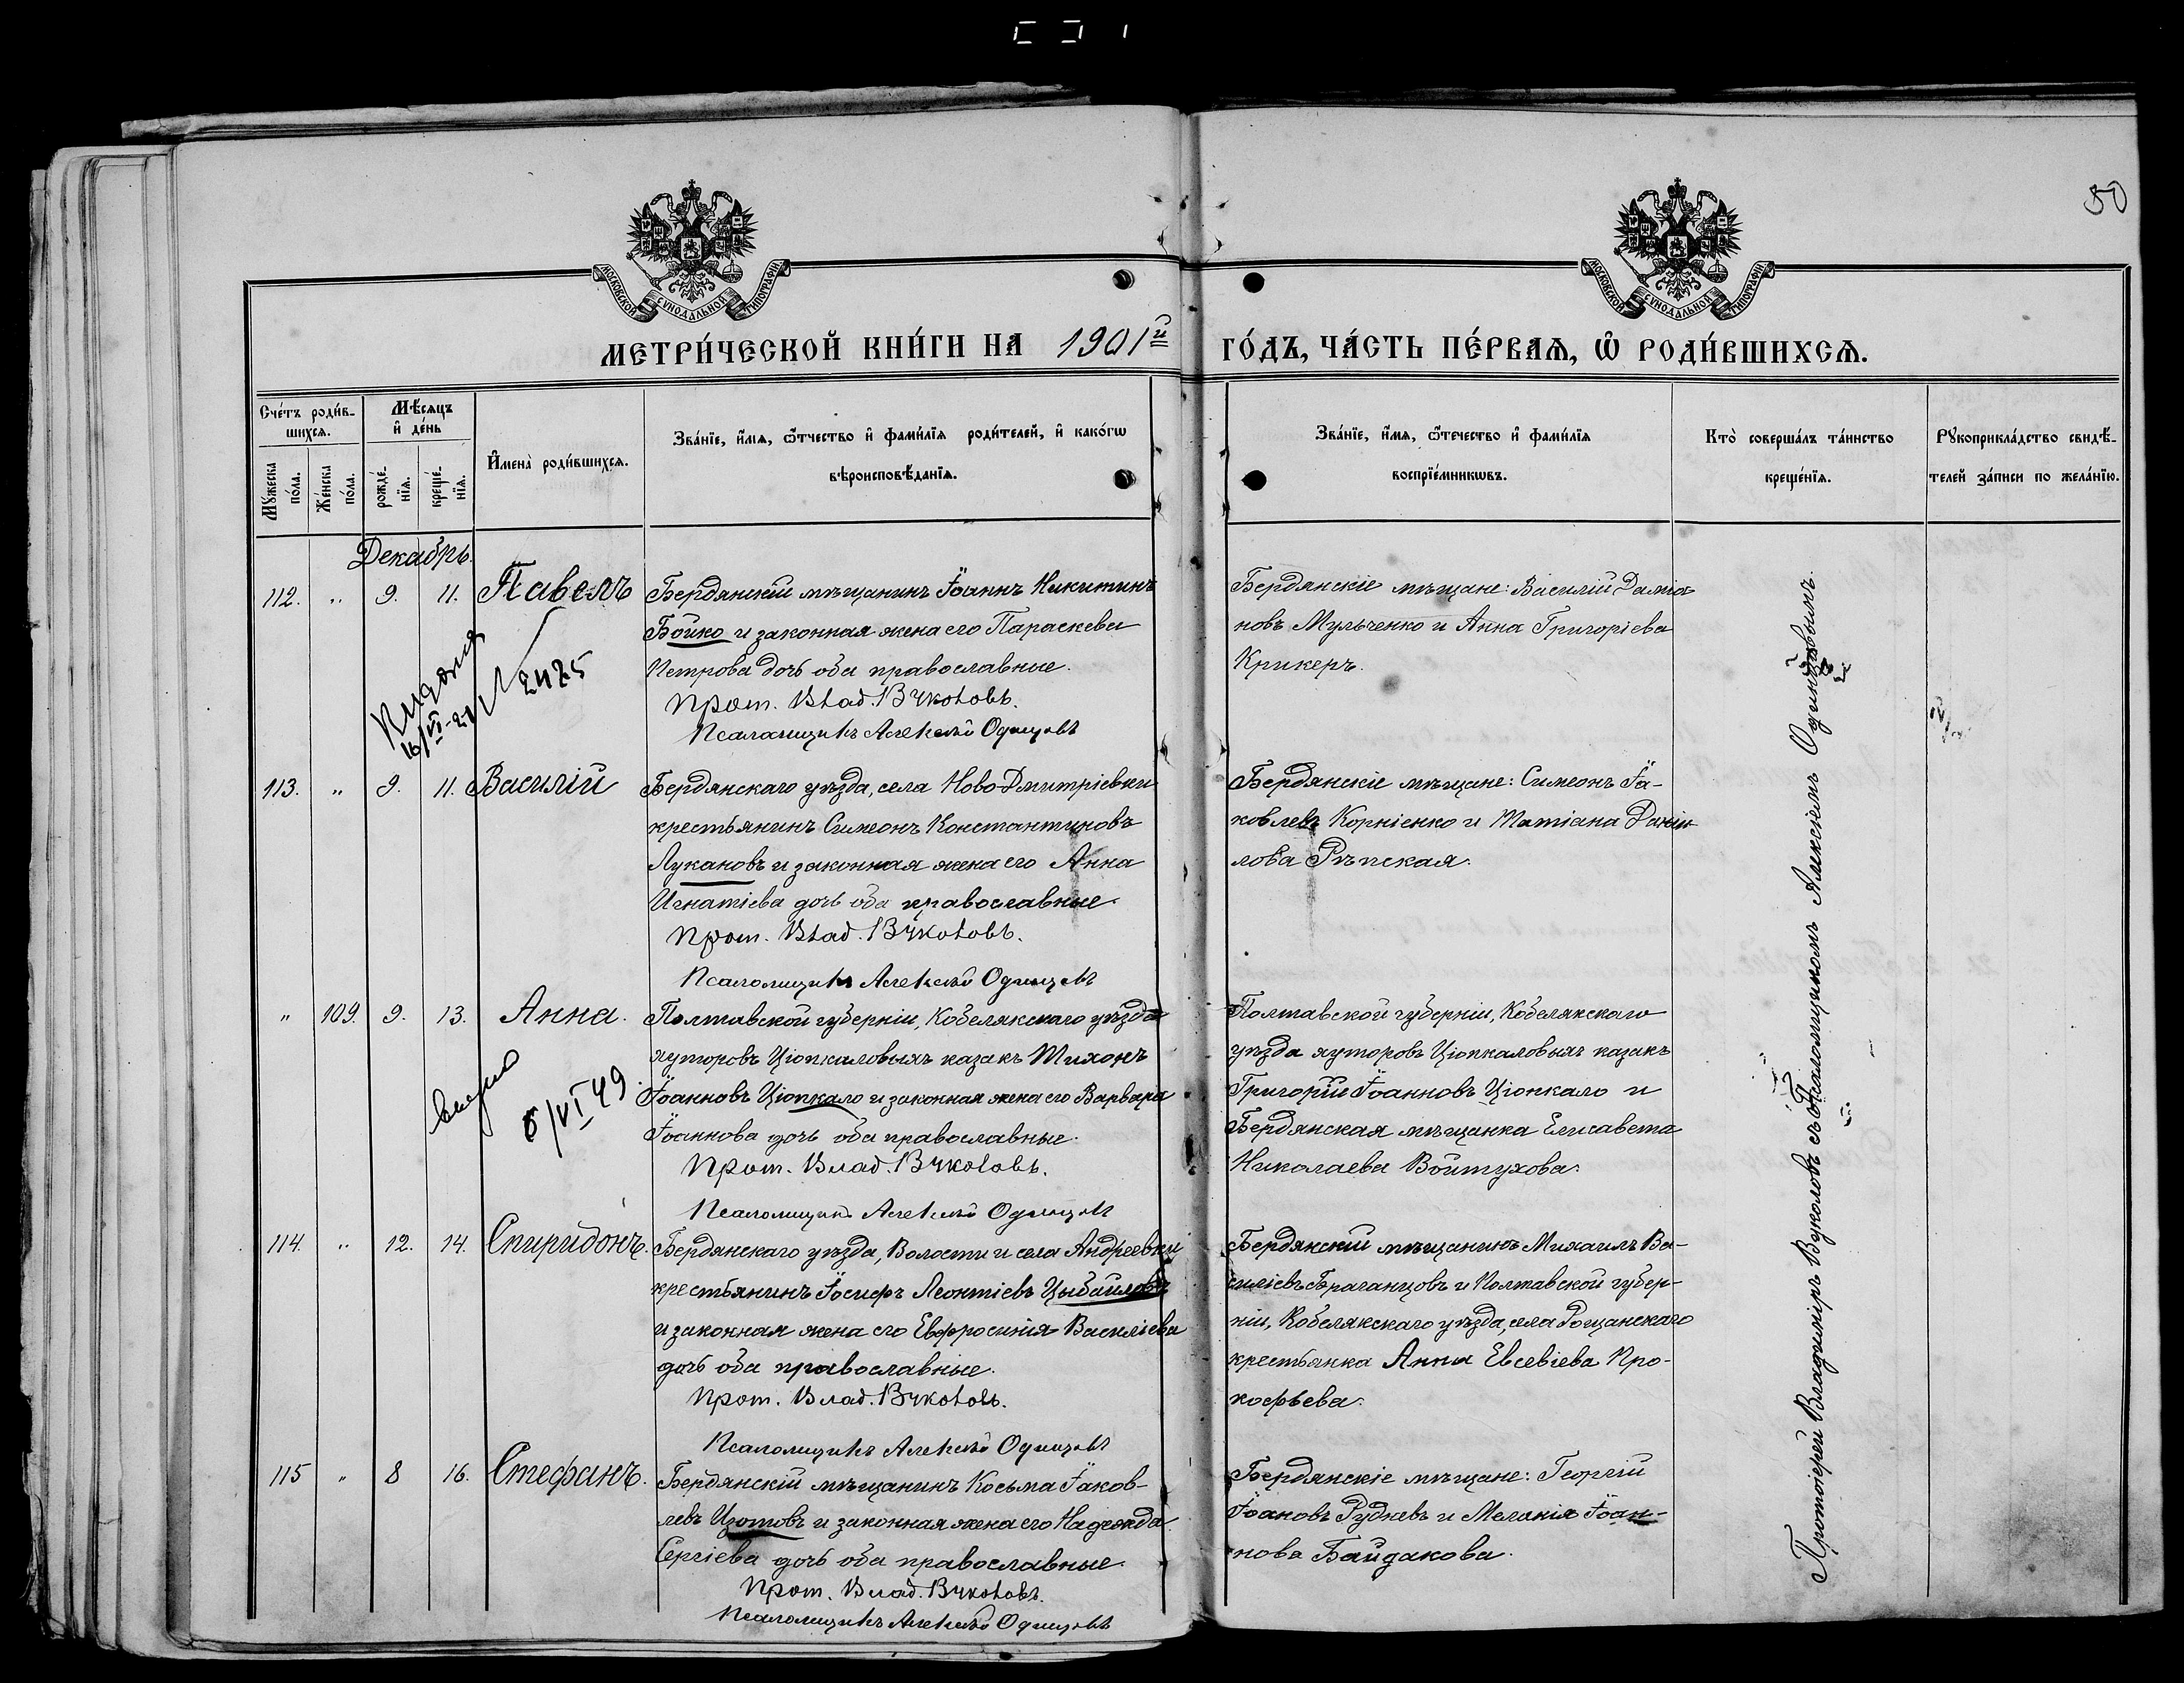 50
МОСКОВСКОЙ СѴНОДАЛЬНОЙ ТИПОГРАФІИ
МОСКОВСКОЙ СѴНОДАЛЬНОЙ ТИПОГРАФІИ
МЕТРИ́ЧЕСКОЙ КНИ́ГИ НА 1901й ГО́ДЪ, ЧА́СТЬ ПЕ́РВАѦ, Ѽ РОДИ́ВШИХСѦ.
Сче́тъ роди́в-
шихсѧ.
Мꙋ́жеска
по́ла.
Же́нска
по́ла.
Мѣ́сѧцъ
и҆ де́нь
рожде́-
нїѧ.
креще́-
нїѧ.
И҆мена̀ роди́вшихсѧ.
Зва́нїе, и҆́мѧ, ѻ҆́тчество и҆ фами́лїѧ роди́телей, и҆ како́гѡ
вѣроисповѣ́данїѧ.
Зва́нїе, и҆́мѧ, ѻ҆́течество и҆ фами́лїѧ
воспрїе́мникѡвъ.
Кто̀ соверша́лъ та́инство
креще́нїѧ.
Рꙋкоприкла́дство свидѣ́-
телей за́писи по жела́нїю.
Декабрь.
112. „ 9. 11. Павелъ
Бердянскій мѣщанинъ Іоаннъ Никитинъ
Бойко и законная жена его Параскева
Петрова дочь оба православные.
Прот. Влад. Вуколовъ.
Псаломщикъ Алексѣй Одинцовъ
Бердянскіе мѣщане: Василій Даміа-
новъ Мульченко и Анна Григоріева
Крикеръ.
16/VI-21
2425
113. „ 9. 11. Василій
Бердянскаго уѣзда, села Ново-Дмитріевки
крестьянинъ Симеонъ Константиновъ
Лукановъ и законная жена его Анна
Игнатіева дочь оба православные.
Прот. Влад. Вуколовъ.
Псаломщикъ Алексѣй Одинцовъ
Бердянскіе мѣщане: Симеонъ Іа-
ковлевъ Корніенко и Татіана Даніи-
лова Рѣпская.
„ 109. 9. 13. Анна.
Полтавской губерніи, Кобелякскаго уѣзда
хуторовъ Ціопкаловыхъ казакъ Тихонъ
Іоанновъ Ціопкало и законная жена его Варвара
Іоаннова дочь оба православные.
Прот. Влад. Вуколовъ.
Псаломщикъ Алексѣй Одинцовъ
Полтавской губерніи, Кобелякскаго
уѣзда хуторовъ Ціопкаловыхъ казакъ
Григорій Іоанновъ Ціопкало и
Бердянская мѣщанка Елисавета
Николаева Войтухова.
6/VI 49
114. „ 12. 14. Спиридонъ.
Бердянскаго уѣзда, Волости и села Андреевки
крестьянинъ Іосифъ Леонтіевъ Цыбайловъ
и законная жена его Евфросинія Василіева
дочь оба православные.
Прот. Влад. Вуколовъ.
Псаломщикъ Алексѣй Одинцовъ
Бердянскій мѣщанинъ Михаилъ Ва-
силіевъ Браганцовъ и Полтавской губер-
ніи, Кобелякскаго уѣзда, села Рощанскаго
крестьянка Анна Евсевіева Про-
кофьева.
115 „ 8 16. Стефанъ.
Бердянскій мѣщанинъ Косьма Іаков-
левъ Изотовъ и законная жена его Надежда
Сергіева дочь оба православные.
Прот. Влад. Вуколовъ.
Псаломщикъ Алексѣй Одинцовъ
Бердянскіе мѣщане: Георгій
Іоановъ Рудневъ и Меланія Іоан-
нова Байдакова.
Протоіерей Владиміръ Вуколовъ съ Псаломщикомъ Алексѣемъ Одинцовымъ.